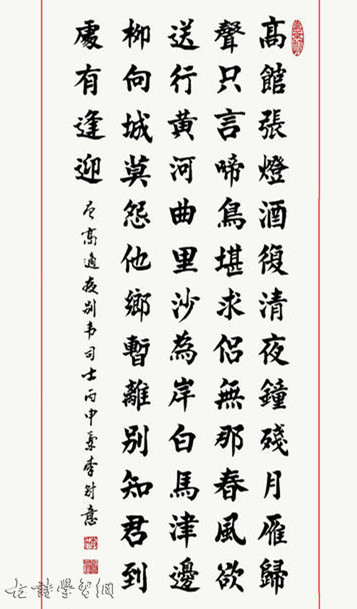 髙館張燈酒復清夜鐘殘月雁歸
聲只言啼鳥堪求侶無那春風欲
送行黄河曲里沙為岸白馬津邊
柳向城莫怨他鄉暫離別知君到
處有逢迎
高適夜别韦司士丙申李
詩學習網